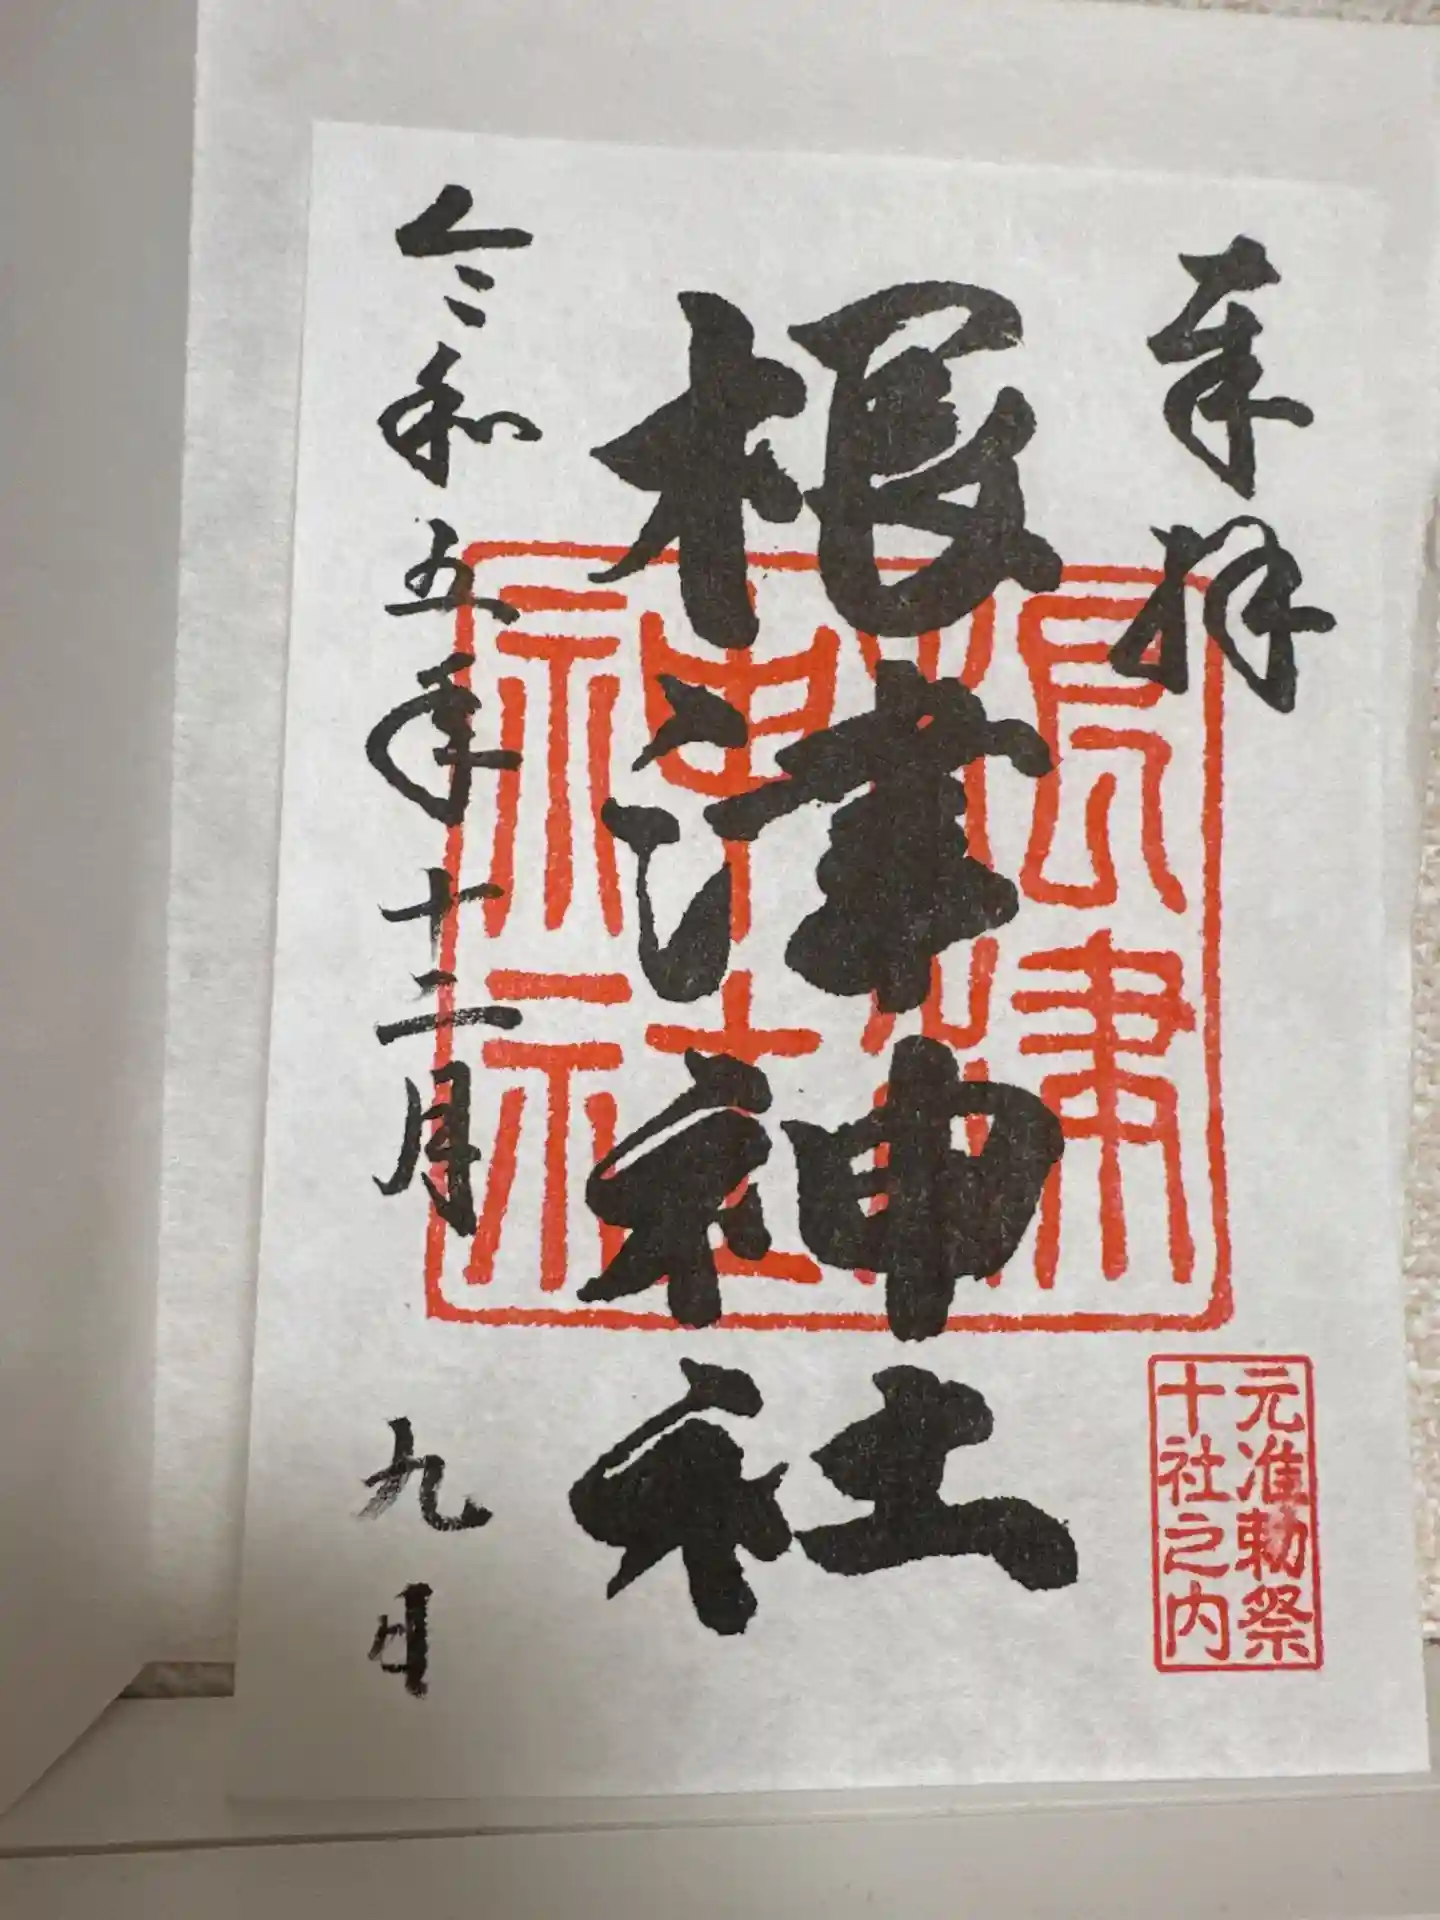 奉拝
根津神社
令和五年十二月九日
根津
神社
元准勅祭
十社之内